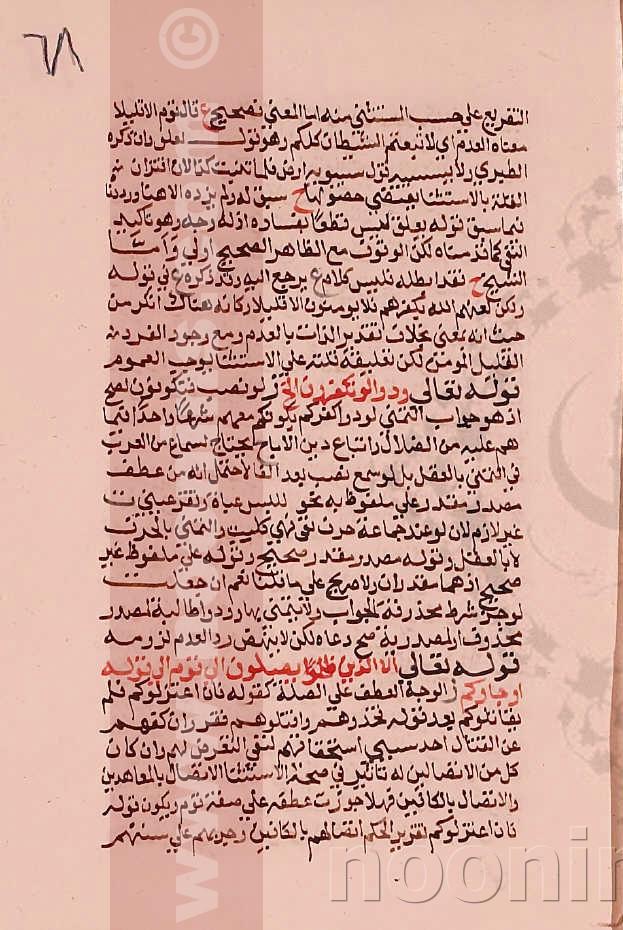 ٦٨
التفريع علي حسب المستثني منه اما المعني فصحيح ع قال قوم الا قليلا
معناه العدم اي لاتبعتم الشيطان كلكم وهو قول قلق وان ذكره
الطبري ولا يشبه قول سيبويه ارض قلما تنبت كذا لان اقتران
القلة بالاستثنا يقتضي حصولها ح سبق له ولم يرده الا هنا ورددنا
فيما سبق قوله يعلق ليس قطعا بفساده اذ له وجه وهو تاكيد
النفي كما قدمناه لكن الوقوف مع الظاهر الصحيح اولي واما
الشيخ ح فقد ابطله فليس كلام ع يرجع اليه وقد ذكره ع في قوله
ولكن لعنهم الله بكفرهم فلا يومنون الا قليلا وكانه هناك انكر من
حيث انه يعني بخلاف تقدير الذات بالعدم ومع وجود الفرد
القليل المومن لكن تعليقه قلته علي الاستثنا يوجب العموم
قوله تعالي ودوا لو تكفرون الخ ز لو نصب فتكونون لصح
اذ هو جواب التمني لو ودوا كفركم وكونكم معهم شرعا واحدا فيما
هم عليه من الضلال واتباع دين الاباح يحتاج لسماع من العرب
في التمني بالفعل بل لو سمع نصب بعد الفا لاحتمل انه من عطف
مصدر مقدر علي ملفوظ به نحو للبس عباة وتقر عيني
غير لازم لان لو عند جماعة حرف تمني فهي كليت والتمني بالحرف
لا بالفعل وقوله مصدر مقدر صحيح وقوله علي ملفوظ غير
صحيح اذ هما مقدران ولا صريح علي ما قلنا نعم ان جعلت
لو حرف شرط محذوفة الجواب ولا تمني بها وودوا طالبة لمصدر
محذوف او لمصدرية صح دعاه لكن لا ينهض رد العدم لزومه
قوله تعالي الا الذين يصلون الي قوم الي قوله
او جاوكم ز الوجه العطف علي الصلة كقوله فان اعتزلوكم فلم
يقاتلوكم بعد قوله فخذوهم واقتلوهم فقرر ان كفهم
عن القتال احد سببي استحقاقهم لنفي التعرض لهم وان كان
كل من الاتصالين له تاثير في صحة الاستثنا الاتصال بالمعاهدين
والاتصال بالكافين فهلا جوزت عطفه علي صفة قوم ويكون قوله
فان اعتزلوكم تقرير الحكم اتصالهم بالكافين وجريهم علي سننهم
www.
noonin